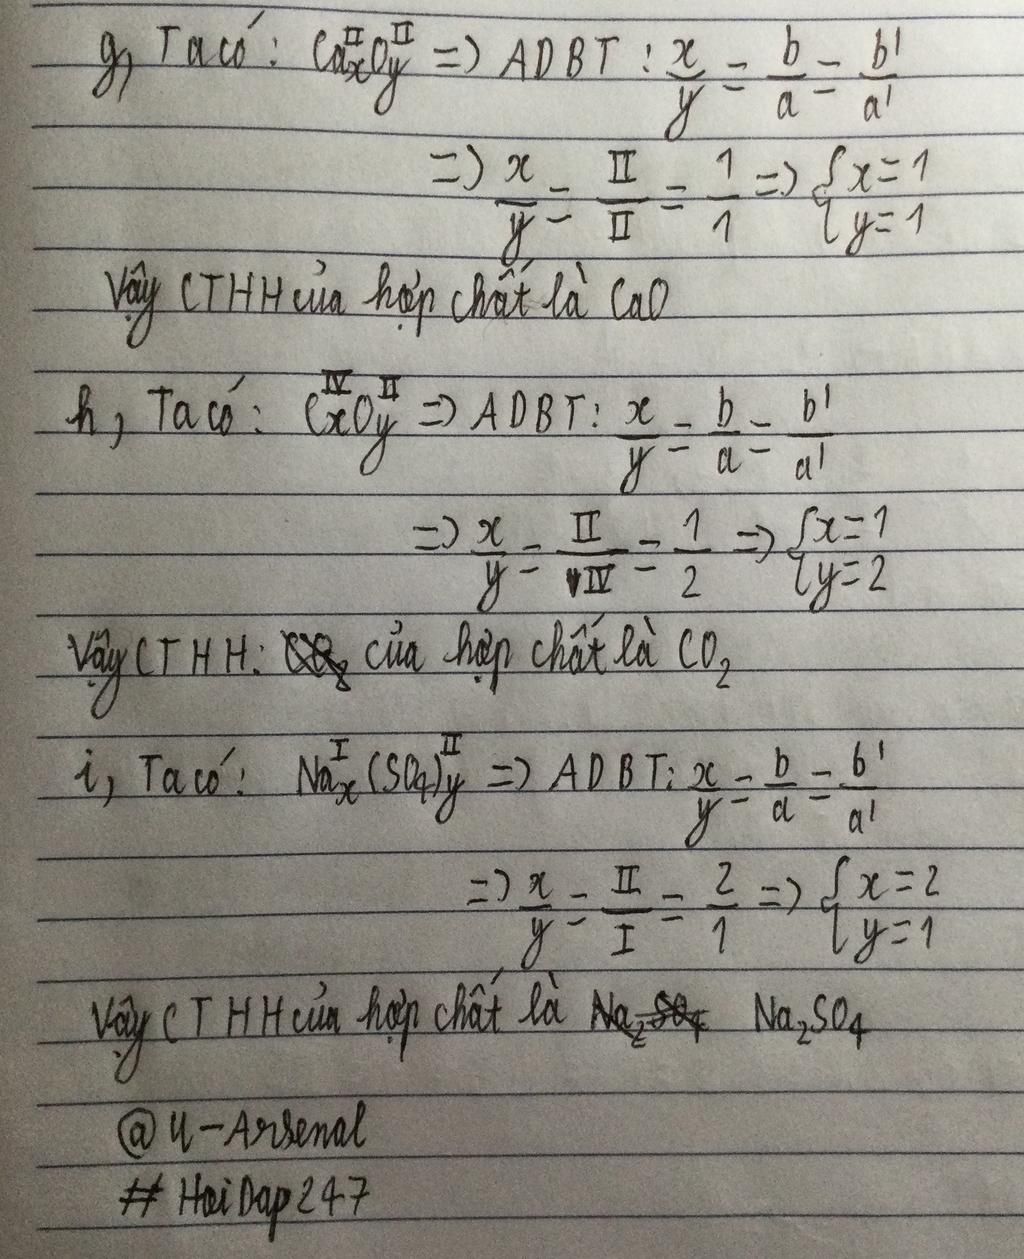 g, Ta có: Ca^II_x O^II_y => ADBT: x/y = b/a = b'/a'
=> x/y = II/II = 1/1 => { x = 1 y = 1
Vậy CTHH của hợp chất là CaO
h, Ta có: C^IV_x O^II_y => ADBT: x/y = b/a = b'/a'
=> x/y = II/IV = 1/2 => { x = 1 y = 2
Vậy CTHH: của hợp chất là CO₂
i, Ta có: Na^I_x (SO₄)^II_y => ADBT: x/y = b/a = b'/a'
=> x/y = II/I = 2/1 => { x = 2 y = 1
Vậy CTHH của hợp chất là Na₂SO₄ Na₂SO₄
@U-Arsenal
# HoiDap247